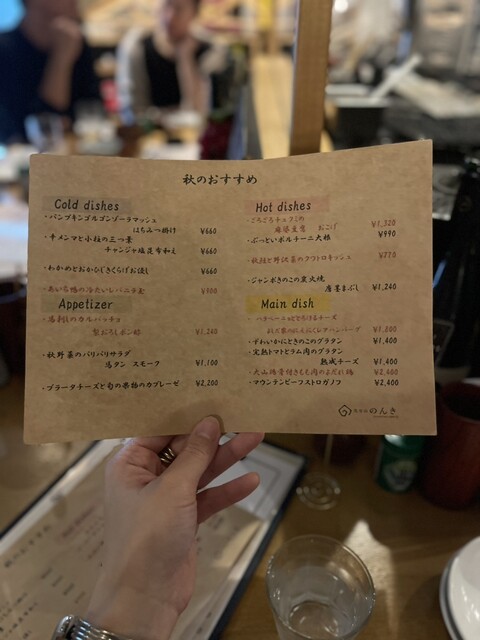 秋のおすすめ
Cold dishes
・パンプキンゴルゴンゾーラマッシュ
はちみつ掛け ¥660
・キメンマと小柱の三つ葉
チャンジャ塩昆布和え ¥660
・わかめとおかひじきくらげお浸し ¥660
Appetizer
・馬刺しのカルパッチョ
梨おろしポン酢 ¥1,240
・秋野菜のバリバリサラダ
馬タン スモーク ¥1,100
・ブラータチーズと旬の果物のカプレーゼ ¥2,200
Hot dishes
・ごろごろチェリミの
麻婆豆腐 おこげ ¥1,320
・ぶっといポルチーニ大根 ¥990
・秋鮭と野沢菜のクワトロキッシュ ¥770
・ジャンボきのこの炭火焼
唐墨まぶし ¥1,240
Main dish
¥1,800
・ずわいかにときのこのグラタン ¥1,400
・完熟トマトとラム肉のグラタン
熟成チーズ ¥1,400
・大山鶏骨付きもも肉のよだれ鶏 ¥2,400
・マウンテンビーフストロガノフ ¥2,400
のんき